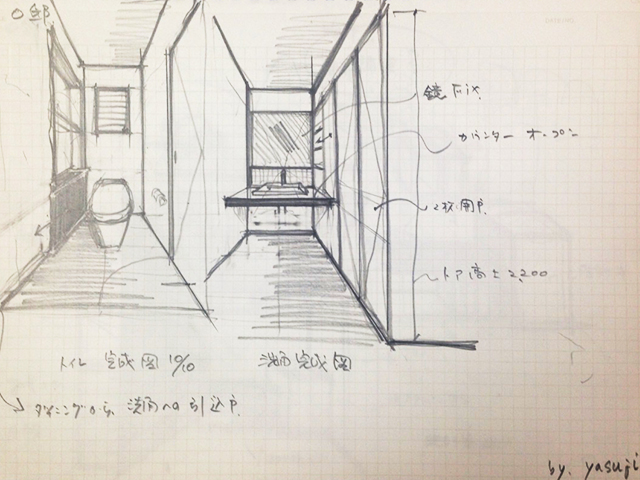 O邸
鏡 Fix.
カウンター オープン
2枚開戸
ドア高さ 2,200
トイレ 完成図 10/10
洗面完成図
ダイニングから 洗面への引込戸
by. yasuji